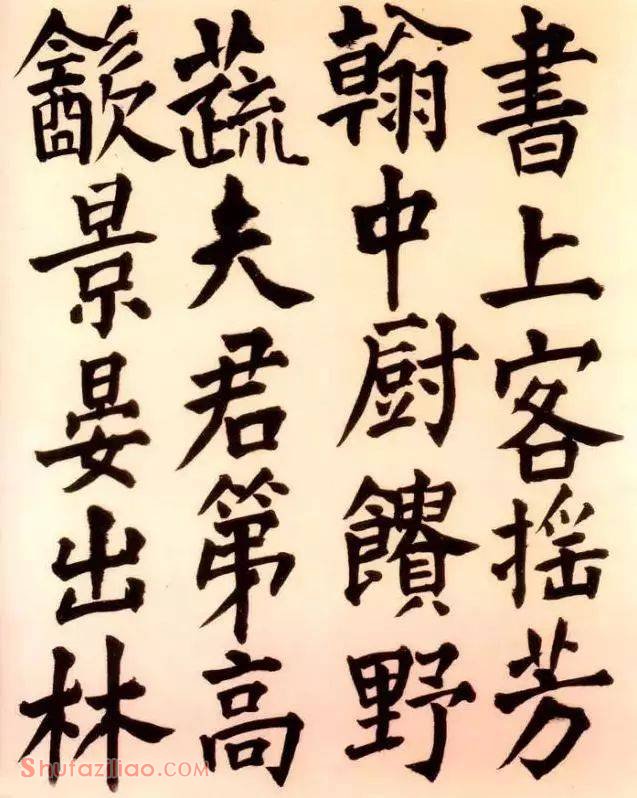 書上客揺芳
翰中厨饋野
蔬夫君第高
㱃景晏出林
Shufaziliao.COM